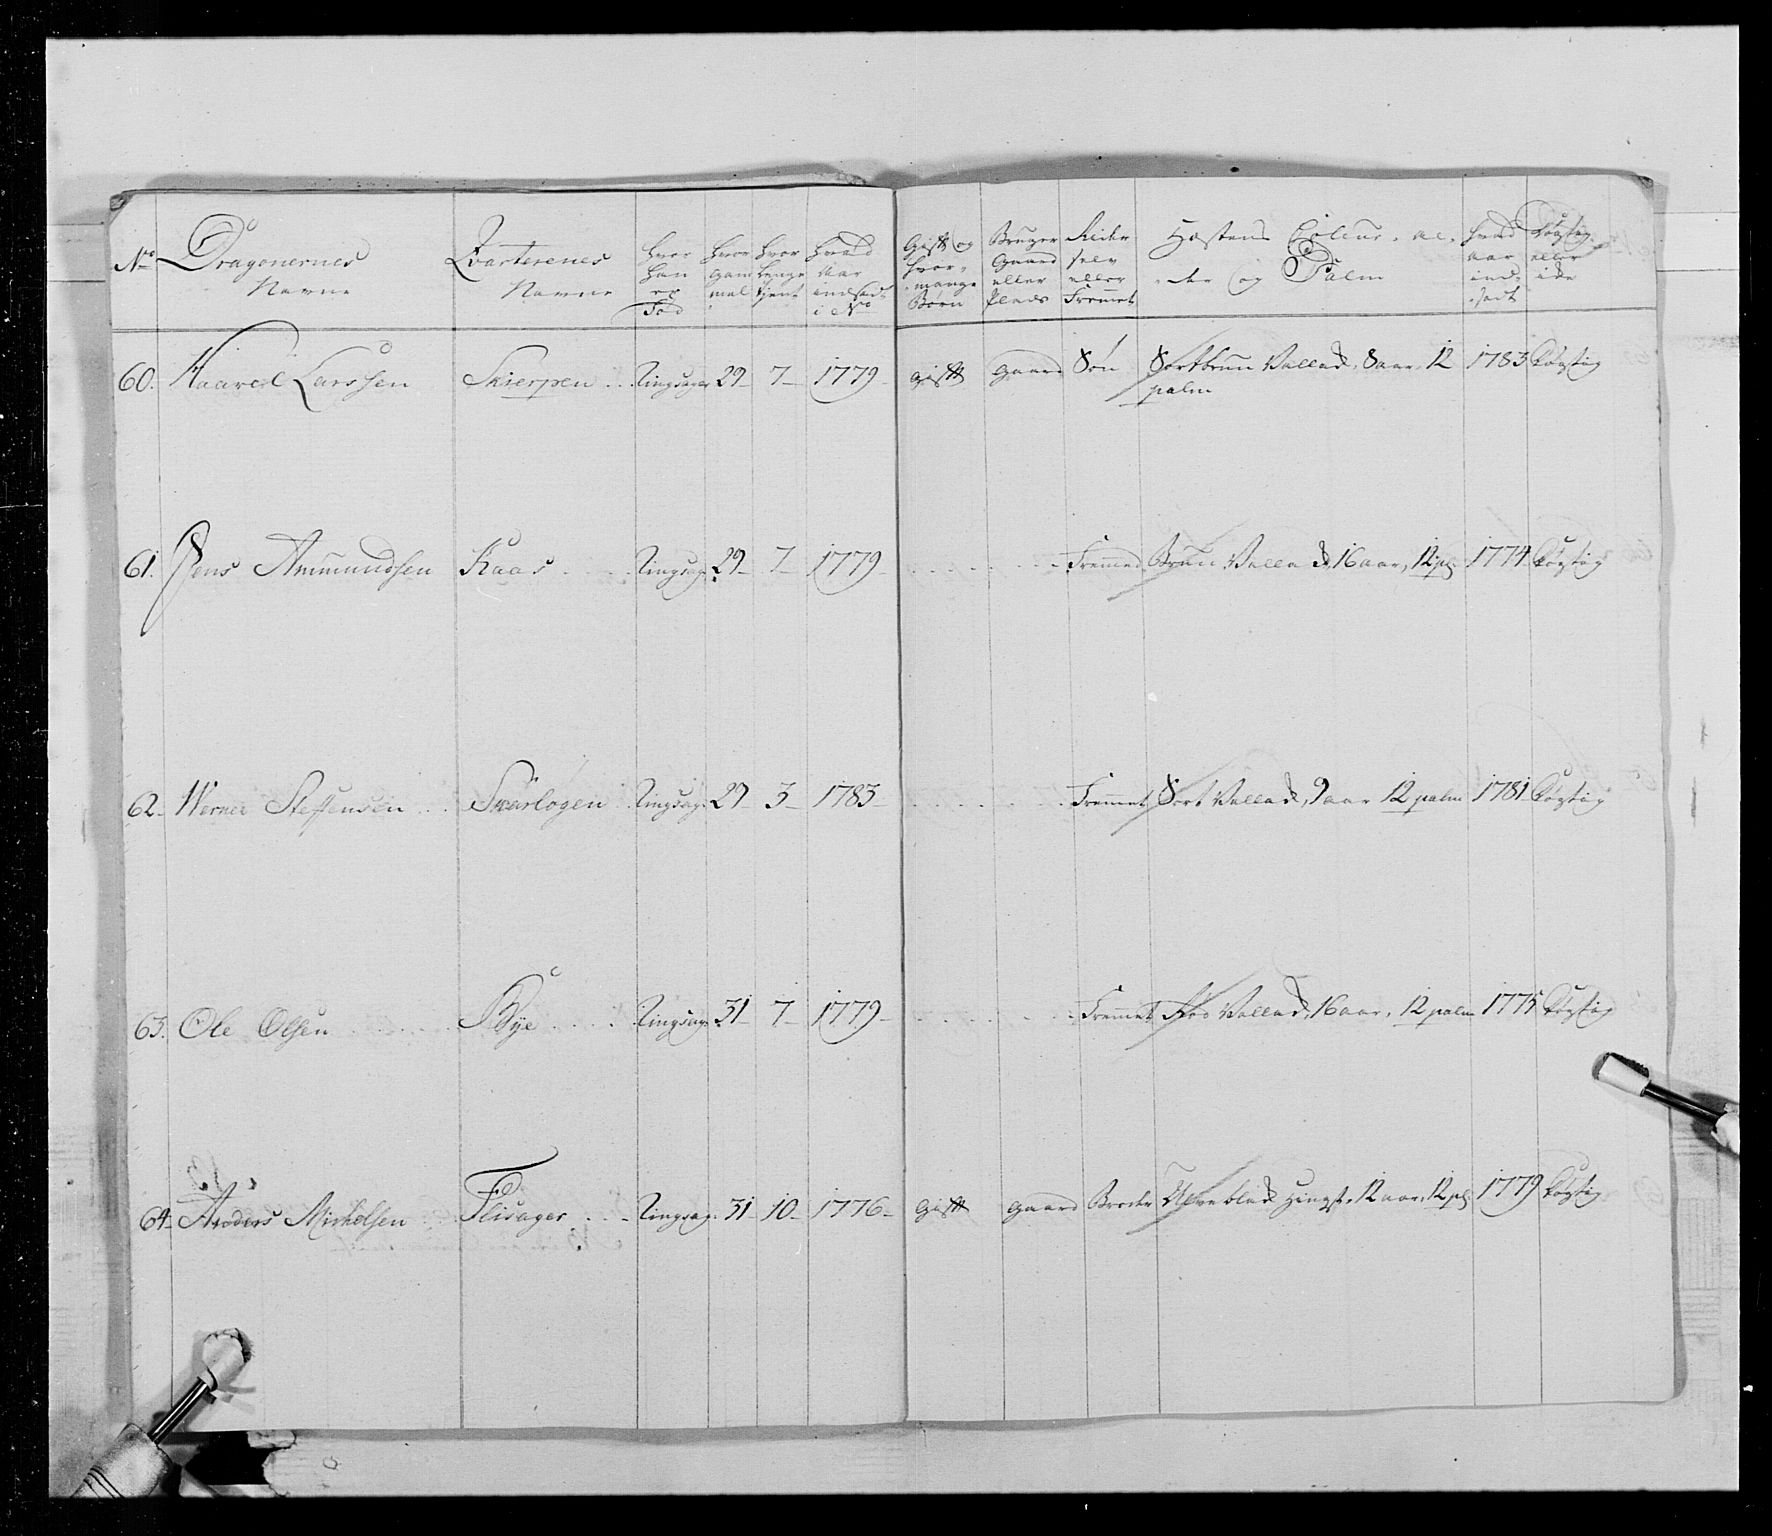 No Dragonernes Navne | Qvarterenes Navne | Hvor han er Fød | Hvor gam mel | Hvor lenge tient | Hvad Aar indsadt i No | Gift og hvor mange Børn | Bruger Gaard eller Plads | Rider selv eller Fremet | Hæstens Coleur, al- der og Palm | Hvad aar ind- sadt | Døgtig eller ikke
60. Haavel Larssen | Skierpen | Ringsager | 29 | 7 | 1779 | gift | Gaard | Søn | Sortbrun Vallack, 8 aar, 12 palm | 1783 | Døgtig
61. Jens Ammundsen | Kaas | Ringsag: | 29 | 7 | 1779 | Fremed | Brun Vallack, 16 aar, 12 pl: | 1774 | Døgtig
62. Werner Steffensen | Svarløgen | Ringsag: | 29 | 3 | 1783 | Fremmet | Sort Vallack, 9 aar 12 palm | 1781 | Døgtig
63. Ole Olsen | Bye | Ringsag: | 31 | 7 | 1779 | Fremmet | Vallack, 16 aar, 12 palm | 1775 | Døgtig
64. Anders Michelsen | Flisager | Ringsag: | 31 | 10 | 1776 | Gift | Gaard | Broder | Hingst, 12 aar, 12 pl: | 1779 | Døgtig